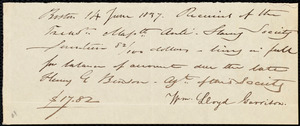 Boston 14 June 1837. Received of the
Treasr. Massts. Anti. Slavery Society
Seventeen 82/100 dollars – being in full
for balance of account due the late
Henry E Benson – Agt. of said Society
$17.82 Wm. Lloyd Garrison.